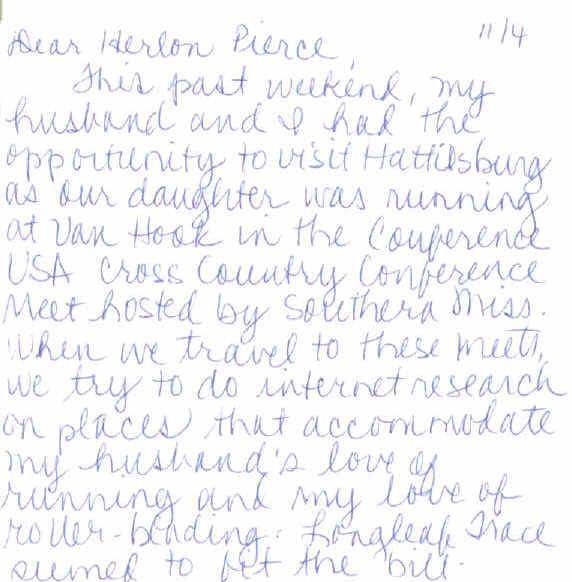 11/4
Dear Herlon Pierce,
This past weekend, my
husband and I had the
opportunity to visit Hattiesburg
as our daughter was running
at Van Hook in the Conference
USA Cross Country Conference
Meet hosted by Southern Miss.
When we travel to these meets,
we try to do internet research
on places that accommodate
my husband's love of
running and my love of
roller-blading. Longleaf Trace
seemed to fit the bill.